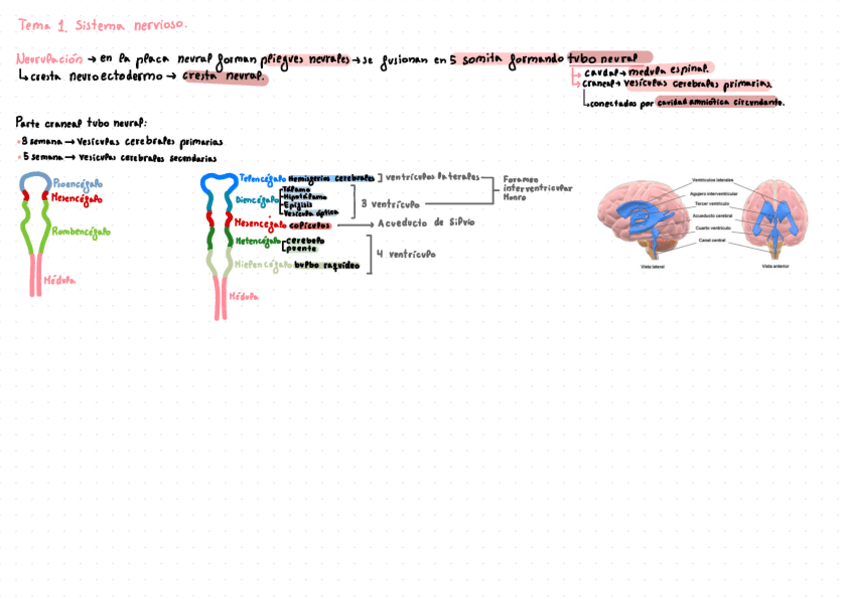 Tema 1. Sistema nervioso.
Neurulación → en la placa neural forman pliegues neurales → se fusionan en 5 somita formando tubo neural
↳ cresta neuroectodermo → cresta neural.
caudal → medula espinal.
craneal → vesículas cerebrales primarias
conectados por cavidad amniótica circundante.
Parte craneal tubo neural:
·3 semana → Vesículas cerebrales primarias
·5 semana → vesículas cerebrales secundarias
Proencégalo
Mesencégalo
Rombencégalo
Médula
Telencégalo Hemisferios cerebrales ] ventrículos laterales
Diencégalo
Tálamo
Hipotálamo
Epígisis
Vesícula óptica
3 ventrículo
Foramen
interventricular
Monro
Mesencégalo colículos → Acueducto de Silvio
Metencégalo
cerebelo
puente
4 ventrículo
Mielencégalo bulbo raquídeo
Médula
Ventrículos laterales
Agujero interventricular
Tercer ventrículo
Acueducto cerebral
Cuarto ventrículo
Canal central
Vista lateral
Vista anterior